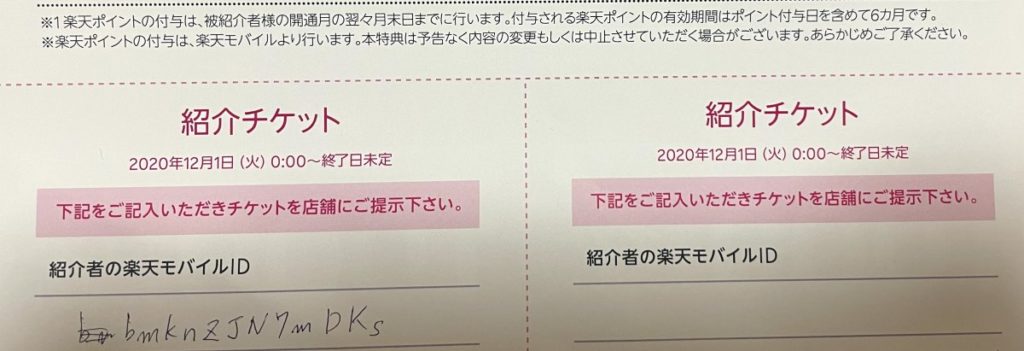 ※1 楽天ポイントの付与は、被紹介者様の開通月の翌々月末日までに行います。付与される楽天ポイントの有効期間はポイント付与日を含めて6カ月です。
※楽天ポイントの付与は、楽天モバイルより行います。本特典は予告なく内容の変更もしくは中止させていただく場合がございます。あらかじめご了承ください。
紹介チケット
2020年12月1日 (火) 0:00〜終了日未定
下記をご記入いただきチケットを店舗にご提示下さい。
紹介者の楽天モバイルID
bmknZJN7mDKs
紹介チケット
2020年12月1日 (火) 0:00〜終了日未定
下記をご記入いただきチケットを店舗にご提示下さい。
紹介者の楽天モバイルID